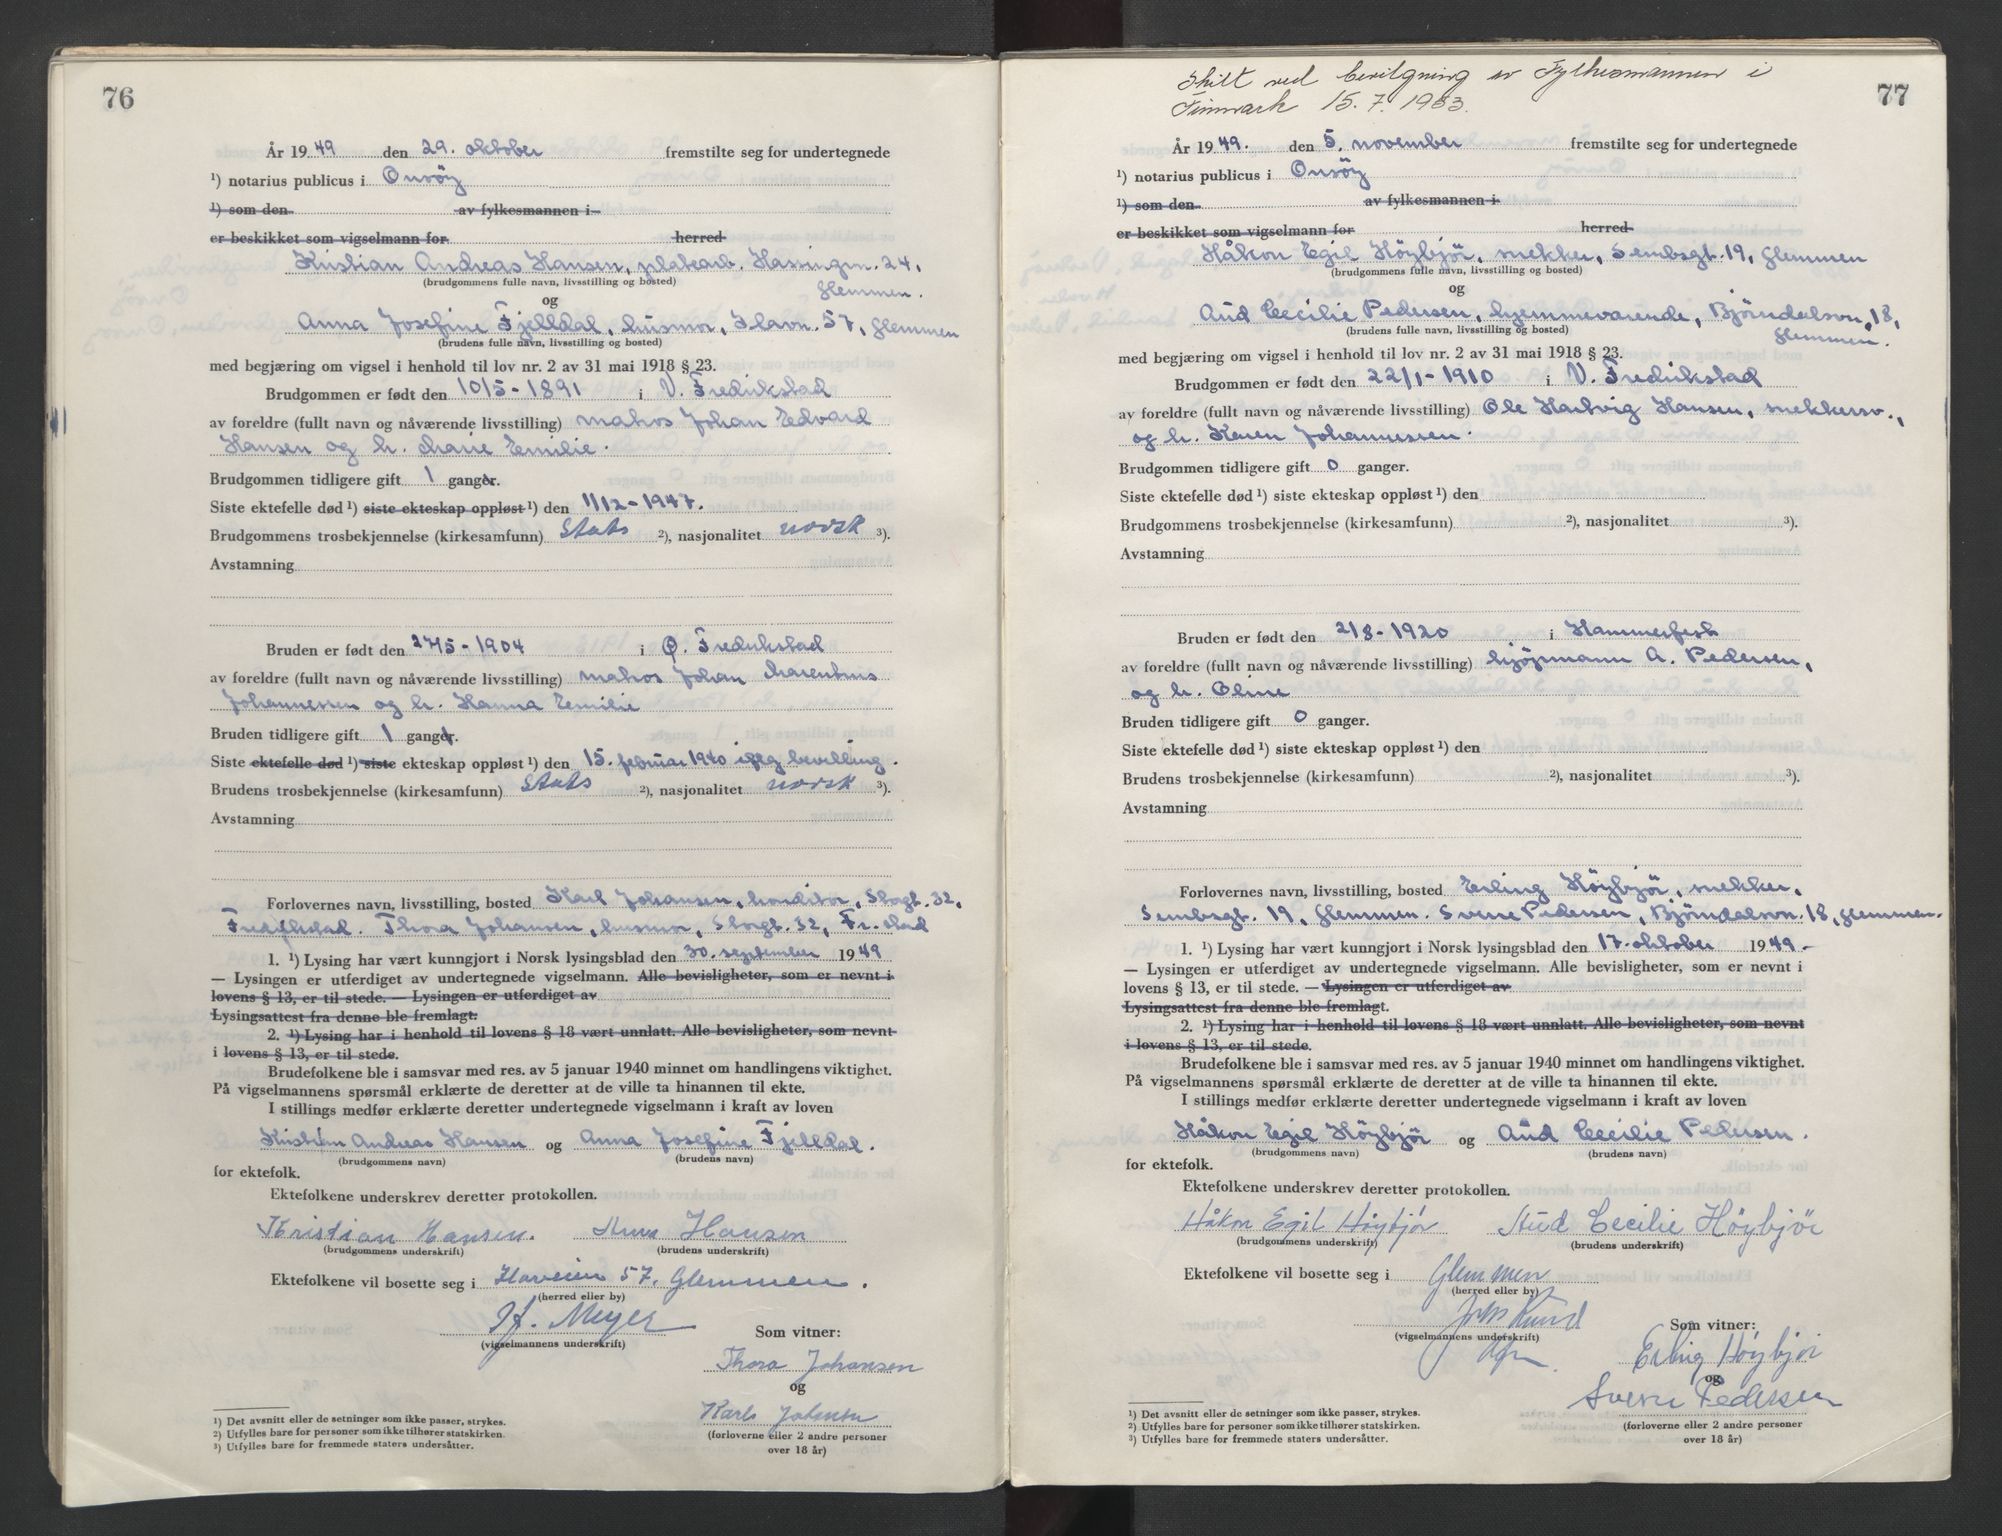 76
År 19 49 den 29. oktober fremstilte seg for undertegnede
¹) notarius publicus i Onsöy
¹) som den av fylkesmannen i
er beskikket som vigselmann for herred
Kristian Andreas Hansen, platearb. Hassingvn. 24,
(brudgommens fulle navn, livsstilling og bosted) Glemmen.
og
Anna Josefine Fjelldal, husmor, Ilavn. 57, Glemmen
(brudens fulle navn, livsstilling og bosted)
med begjæring om vigsel i henhold til lov nr. 2 av 31 mai 1918 § 23.
Brudgommen er født den 10/5 - 1891 i V. Fredrikstad
av foreldre (fullt navn og nåværende livsstilling) matros Johan Edvard
Hansen og h. Marie Emilie.
Brudgommen tidligere gift 1 ganger.
Siste ektefelle død ¹) siste ekteskap oppløst ¹) den 1/12 - 1947.
Brudgommens trosbekjennelse (kirkesamfunn) Stats ²), nasjonalitet norsk ³).
Avstamning
Bruden er født den 27/5 - 1904 i Ø. Fredrikstad
av foreldre (fullt navn og nåværende livsstilling) matros Johan Marenthius
Johannessen og h. Hanna Emilie
Bruden tidligere gift 1 ganger.
Siste ektefelle død ¹) siste ekteskap oppløst ¹) den 15. februar 1940 ifølg bevilling.
Brudens trosbekjennelse (kirkesamfunn) Stats ²), nasjonalitet norsk ³).
Avstamning
Forlovernes navn, livsstilling, bosted Karl Johansen, konditor, Storgt. 32,
Fredrikstad. Thora Johansen, husmor, Storgt. 32, Fr.stad
1. ¹) Lysing har vært kunngjort i Norsk lysingsblad den 30. september 19 49
— Lysingen er utferdiget av undertegnede vigselmann. Alle bevisligheter, som er nevnt i
lovens § 13, er til stede. — Lysingen er utferdiget av
Lysingsattest fra denne ble fremlagt.
2. ¹) Lysing har i henhold til lovens § 18 vært unnlatt. Alle bevisligheter, som nevnt
i lovens § 13, er til stede.
Brudefolkene ble i samsvar med res. av 5 januar 1940 minnet om handlingens viktighet.
På vigselmannens spørsmål erklærte de deretter at de ville ta hinannen til ekte.
I stillings medfør erklærte deretter undertegnede vigselmann i kraft av loven
Kristian Andreas Hansen og Anna Josefine Fjelldal.
(brudgommens navn) (brudens navn)
for ektefolk.
Ektefolkene underskrev deretter protokollen.
Kristian Hansen. Anna Hansen
(brudgommens underskrift) (brudens underskrift)
Ektefolkene vil bosette seg i Ilaveien 57, Glemmen.
(herred eller by)
Meyer
(vigselmannens underskrift)
Som vitner:
Thora Johansen
og
Karl Johansen
(forloverne eller 2 andre personer
over 18 år)
¹) Det avsnitt eller de setninger som ikke passer, strykes.
²) Utfylles bare for personer som ikke tilhører statskirken.
³) Utfylles bare for fremmede staters undersåtter.
77
Skilt ved bevilgning av Fylkesmannen i
Finnmark 15. 7. 1953.
År 19 49. den 5. november fremstilte seg for undertegnede
¹) notarius publicus i Onsöy
¹) som den av fylkesmannen i
er beskikket som vigselmann for herred
Håkon Egil Höybjör, snekker, Sembsgt. 19, Glemmen
(brudgommens fulle navn, livsstilling og bosted)
og
Aud Cecilie Pedersen, hjemmeværende, Björndalsvn. 18,
(brudens fulle navn, livsstilling og bosted) Glemmen.
med begjæring om vigsel i henhold til lov nr. 2 av 31 mai 1918 § 23.
Brudgommen er født den 22/1 - 1910 i V. Fredrikstad
av foreldre (fullt navn og nåværende livsstilling) Ole Hartvig Hansen, snekkersv.,
og h. Karen Johannessen.
Brudgommen tidligere gift 0 ganger.
Siste ektefelle død ¹) siste ekteskap oppløst ¹) den
Brudgommens trosbekjennelse (kirkesamfunn) ²), nasjonalitet ³).
Avstamning
Bruden er født den 2/8 - 1920 i Hammerfest
av foreldre (fullt navn og nåværende livsstilling) kjöpmann A. Pedersen,
og h. Oline
Bruden tidligere gift 0 ganger.
Siste ektefelle død ¹) siste ekteskap oppløst ¹) den
Brudens trosbekjennelse (kirkesamfunn) ²), nasjonalitet ³).
Avstamning
Forlovernes navn, livsstilling, bosted Erling Höybjör, snekker,
Sembsgt. 19, Glemmen. Sverre Pedersen, Björndalsvn. 18, Glemmen.
1. ¹) Lysing har vært kunngjort i Norsk lysingsblad den 17. oktober 19 49. -
— Lysingen er utferdiget av undertegnede vigselmann. Alle bevisligheter, som er nevnt i
lovens § 13, er til stede. — Lysingen er utferdiget av
Lysingsattest fra denne ble fremlagt.
2. ¹) Lysing har i henhold til lovens § 18 vært unnlatt. Alle bevisligheter, som nevnt
i lovens § 13, er til stede.
Brudefolkene ble i samsvar med res. av 5 januar 1940 minnet om handlingens viktighet.
På vigselmannens spørsmål erklærte de deretter at de ville ta hinannen til ekte.
I stillings medfør erklærte deretter undertegnede vigselmann i kraft av loven
Håkon Egil Höybjör og Aud Cecilie Pedersen.
(brudgommens navn) (brudens navn)
for ektefolk.
Ektefolkene underskrev deretter protokollen.
Håkon Egil Höybjör Aud Cecilie Höybjör
(brudgommens underskrift) (brudens underskrift)
Ektefolkene vil bosette seg i Glemmen
(herred eller by)
(vigselmannens underskrift)
Som vitner:
Erling Höybjör
og
Sverre Pedersen
(forloverne eller 2 andre personer
over 18 år)
¹) Det avsnitt eller de setninger som ikke passer, strykes.
²) Utfylles bare for personer som ikke tilhører statskirken.
³) Utfylles bare for fremmede staters undersåtter.